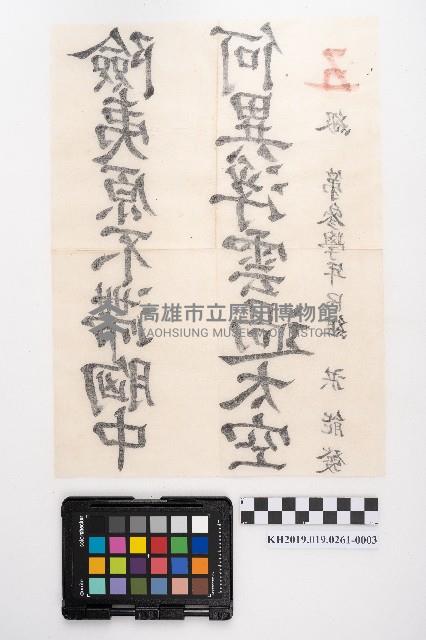 險夷原不滯胸中
何異浮雲過太空
五
級 第參學年 組 洪能發
高雄市立歷史博物館
KAOHSIUNG MUSEUM OF HISTORY
KH2019.019.0261-0003